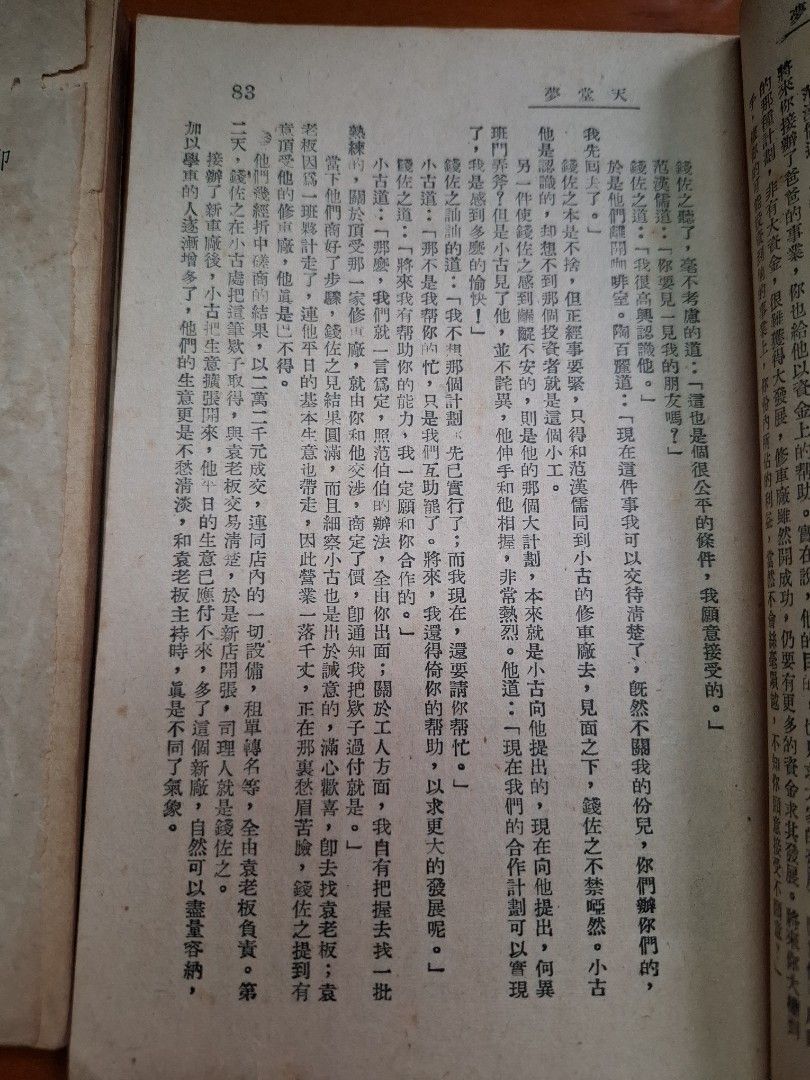 天堂夢
83
錢佐之聽了，毫不考慮的道：「這也是個很公平的條件，我願意接受的。」
范漢儒道：「你要見一見我的朋友嗎？」
錢佐之道：「我很高興認識他。」
於是他們離開咖啡室。陶百麗道：「現在這件事我可以交待清楚了，旣然不關我的份兒，你們辦你們的，
我先回去了。」
錢佐之本是不捨，但正經事要緊，只得和范漢儒同到小古的修車廠去，見面之下，錢佐之不禁啞然。小古
他是認識的，却想不到那個投資者就是這個小工。
另一件使錢佐之感到齷齪不安的，則是他的那個大計劃，本來就是小古向他提出的，現在向他提出，何異
班門弄斧？但是小古見了他，並不詫異，他伸手和他相握，非常熱烈。他道：「現在我們的合作計劃可以實現
了，我是感到多麽的愉快！」
錢佐之訕訕的道：「我不想那個計劃 先已實行了；而我現在，還要請你帮忙。」
小古道：「那不是我帮你的忙，只是我們互助罷了。將來，我還得倚你的帮助，以求更大的發展呢。」
錢佐之道：「將來我有帮助你的能力，我一定願和你合作的。」
小古道：「那麽，我們就一言爲定，照范伯伯的辦法，全由你出面；關於工人方面，我自有把握去找一批
熟練的，關於頂受那一家修車廠，就由你和他交涉，商定了價，卽通知我把欵子過付就是。」
當下他們商好了步驟，錢佐之見結果圓滿，而且細察小古也是出於誠意的，滿心歡喜，卽去找袁老板；袁
老板因爲一班夥計走了，連他平日的基本生意也帶走，因此營業一落千丈，正在那裏愁眉苦臉，錢佐之提到有
意頂受他的修車廠，他眞是巴不得。
他們幾經折中磋商的結果，以二萬二千元成交，連同店內的一切設備，租單轉名等，全由袁老板負責。第
二天，錢佐之在小古處把這筆欵子取得，與袁老板交易清楚，於是新店開張，司理人就是錢佐之。
接辦了新車廠後，小古把生意擴張開來，他平日的生意已應付不來，多了這個新廠，自然可以盡量容納，
加以學車的人逐漸增多了，他們的生意更是不愁清淡，和袁老板主持時，眞是不同了氣象。